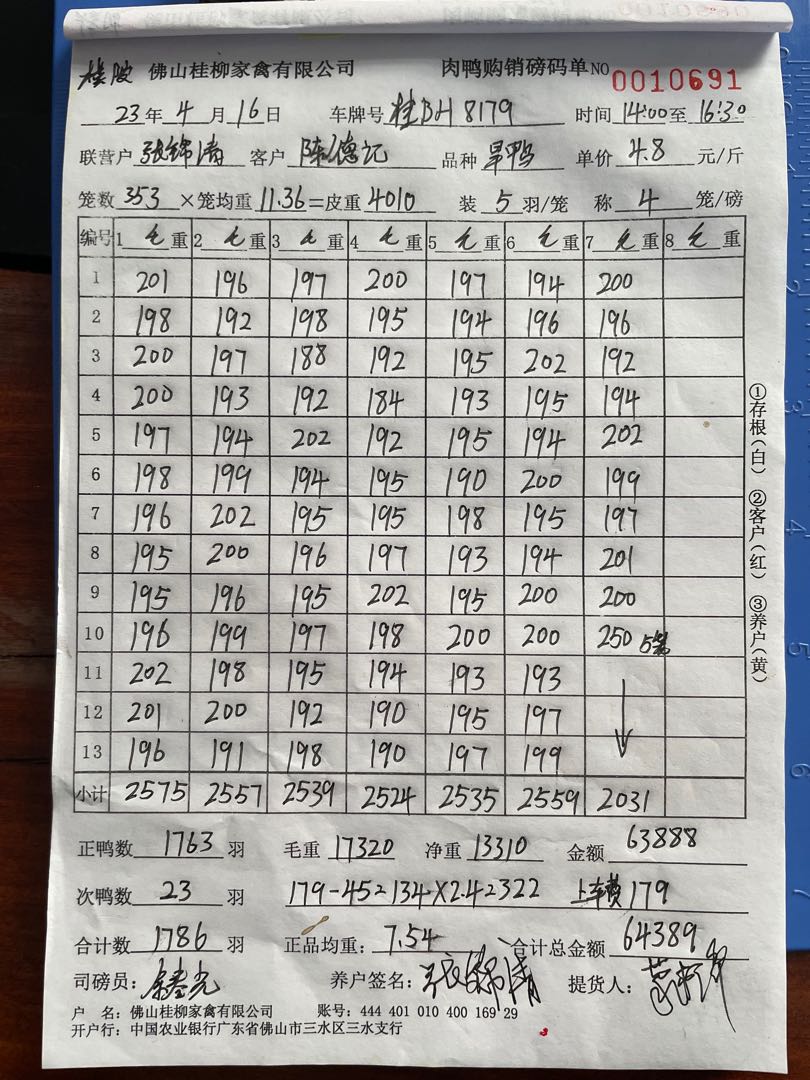 桂胶 佛山桂柳家禽有限公司 肉鸭购销磅码单 NO 0010691
23年4月16日 车牌号 桂BH8179 时间 14:00至16:30
联营户 张锦清 客户 陈德记 品种 旱鸭 单价 4.8 元/斤
笼数 353 ×笼均重 11.36 =皮重 4010 装 5 羽/笼 称 4 笼/磅
编号 1 毛重 2 毛重 3 毛重 4 毛重 5 毛重 6 毛重 7 毛重 8 毛重
1 201 196 197 200 197 194 200
2 198 192 198 195 194 196 196
3 200 197 188 192 195 202 192
4 200 193 192 184 193 195 194
5 197 194 202 192 195 194 202
6 198 199 194 195 190 200 199
7 196 202 195 195 198 195 197
8 195 200 196 197 193 194 201
9 195 196 195 202 195 200 200
10 196 199 197 198 200 200 250 5笼
11 202 198 195 194 193 193
12 201 200 192 190 195 197
13 196 191 198 190 197 199
小计 2575 2557 2539 2524 2535 2559 2031
正鸭数 1763 羽 毛重 17320 净重 13310 金额 63888
次鸭数 23 羽 179-45=134×2.4=322 上车费 179
合计数 1786 羽 正品均重: 7.54 合计总金额 64389
司磅员: 养户签名: 张锦清 提货人:
户 名: 佛山桂柳家禽有限公司 账号: 444 401 010 400 169 29
开户行: 中国农业银行广东省佛山市三水区三水支行
①存根(白) ②客户(红) ③养户(黄)